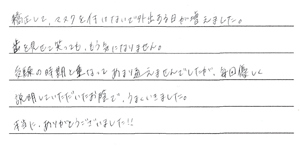 矯正して、マスクを付けないで外出する日が増えました。
歯を見せて笑っても、もう気になりません。
台線の時期と重なってあまり通えませんでしたが、毎回優しく
説明していただいたお陰で、うまくいきました。
本当に、ありがとうございました!!